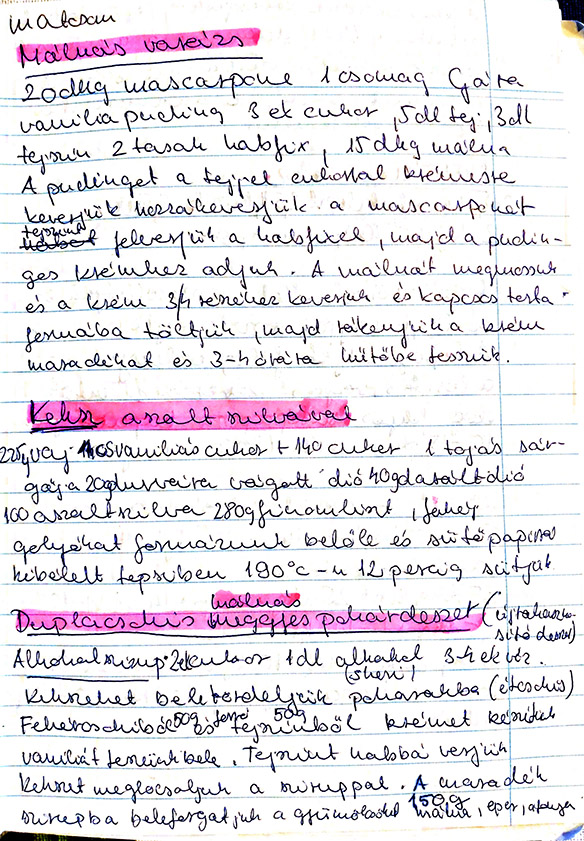 Málnás varázs
20dkg mascarpone 1 csomag
vanilia puding 3 ek cukor, 5dl tej, 3dl
tejszin 2 tasak habfix, 15dkg málna
A pudinget a tejjel cukorral krémesre
keverjük hozzákeverjük a mascarponét
tejszint felverjük a habfixel, majd a pudin-
ges krémhez adjuk. A málnát megmossuk
és a krém 3/4 részéhez keverjük és kapcsos torta-
formába töltjük, majd rákenjük a krém
maradékat és 3-4 órára hűtőbe tesszük.
Keksz aszalt szilvával
225g vaj vaniliás cukor + 140 cukor 1 tojás sár-
gája 20g durvára vágott dió 40g darált dió
100 aszalt szilva 280g finomliszt,
golyókat formázunk belőle és sütőpapirral
kibélelt tepsiben 190°C-n 12 percig sütjük
Duplacsokis málnás meggyes pohárdeszet (újrahaszno-
sító deszet)
Alkoholszirup: 2ek cukor 1dl alkohol 3-4 ek víz.
(sheri)
Kekszeket beletördeljük poharakba (étcsokis)
Fehércsokiból 50g és tejszinből 50g krémet készítünk
vaniliát teszünk bele. Tejszint habbá verjük
Kekszet meglocsoljuk a sziruppal. A maradék
szirupba beleforgatjuk a gyümölcsöket 150g málna, eper,